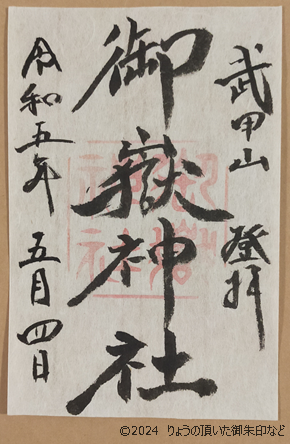 武甲山 登拝
御嶽神社
令和五年 五月四日
©2024 りょうの頂いた御朱印など